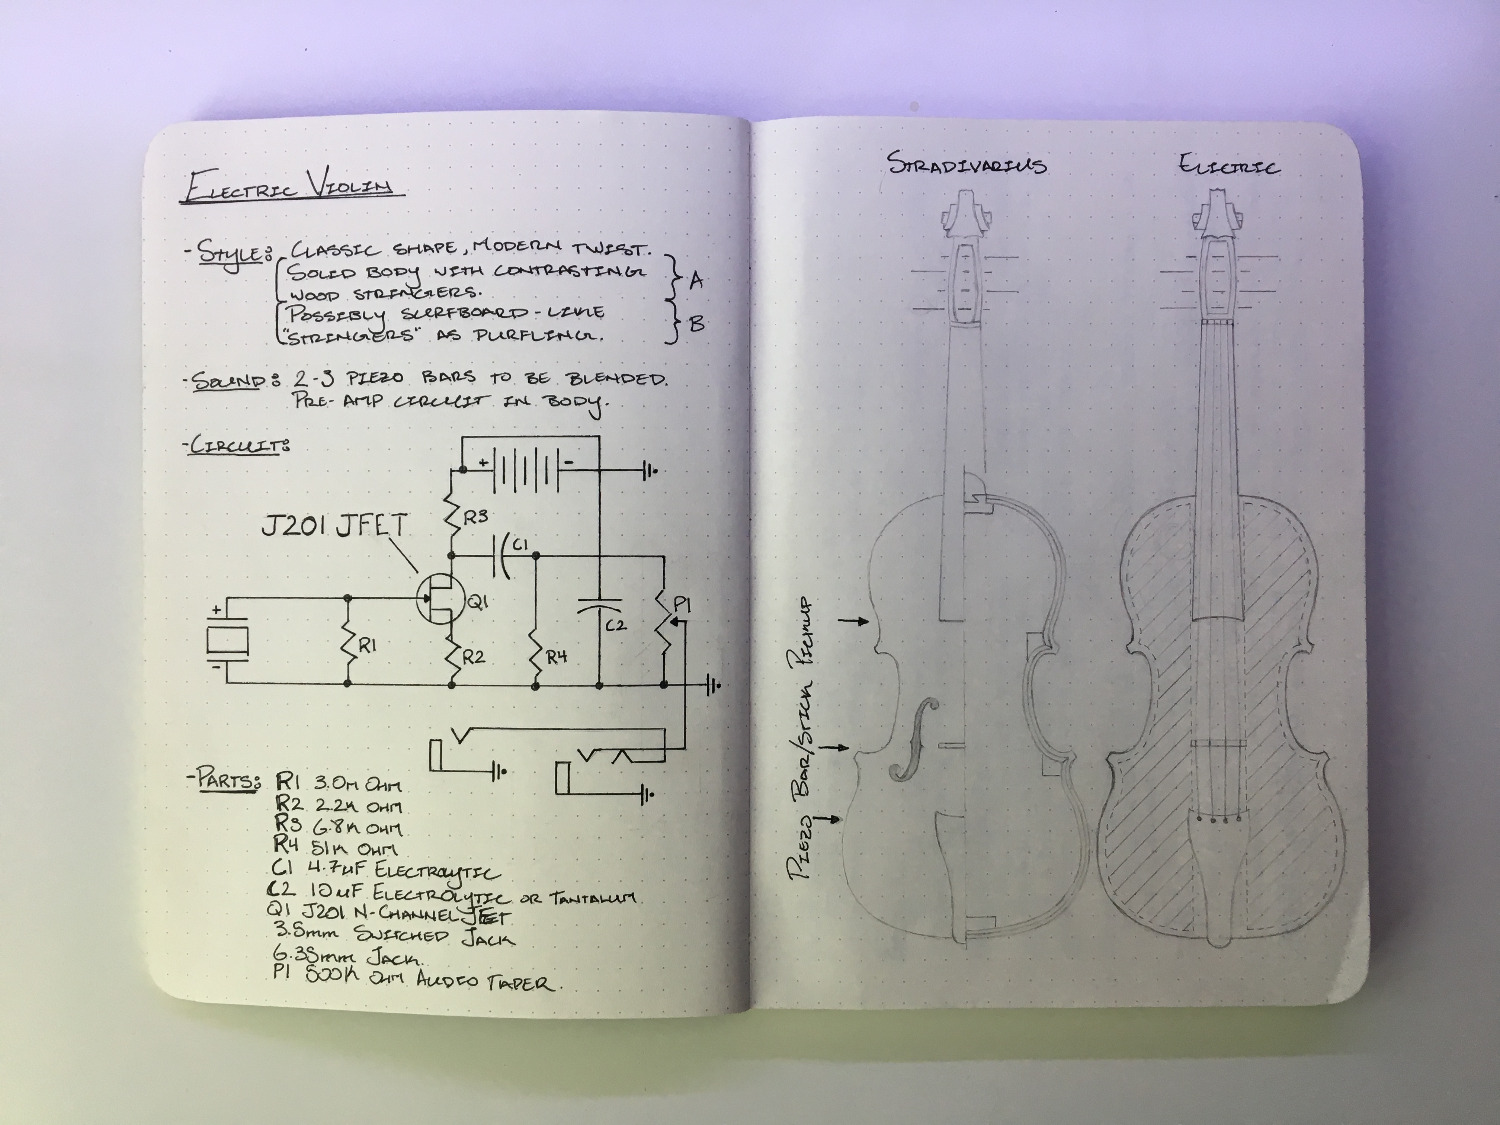 ELECTRIC VIOLIN
- STYLE: CLASSIC SHAPE, MODERN TWIST.
SOLID BODY WITH CONTRASTING
WOOD STRINGERS.
} A
POSSIBLY SURFBOARD-LIKE
"STRINGERS" AS PURFLING.
} B
- SOUND: 2-3 PIEZO BARS TO BE BLENDED.
PRE-AMP CIRCUIT IN BODY.
- CIRCUIT:
+ -
R3
J201 JFET
C1
Q1
P1
+
C2
R1
R2
R4
-
- PARTS: R1 3.0M OHM
R2 2.2K OHM
R3 6.8K OHM
R4 51K OHM
C1 4.7uF ELECTROLYTIC
C2 10uF ELECTROLYTIC OR TANTALUM
Q1 J201 N-CHANNEL JFET
3.5mm SWITCHED JACK
6.35mm JACK.
P1 500K OHM AUDIO TAPER.
STRADIVARIUS
ELECTRIC
PIEZO BAR/STICK PICKUP